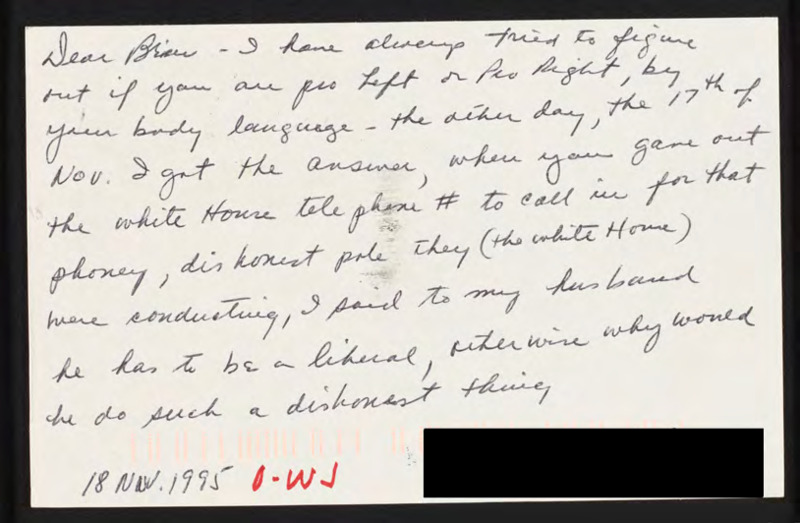 Dear Brian - I have always tried to figure
out if you are pro Left or Pro Right, by
your body language - the other day, the 17th of
Nov. I got the answer, when you gave out
the white House telephone # to call in for that
phoney, dishonest pole they (the white House)
were conducting, I said to my husband
he has to be a liberal, otherwise why would
he do such a dishonest thing
18 NOV. 1995 O-WJ